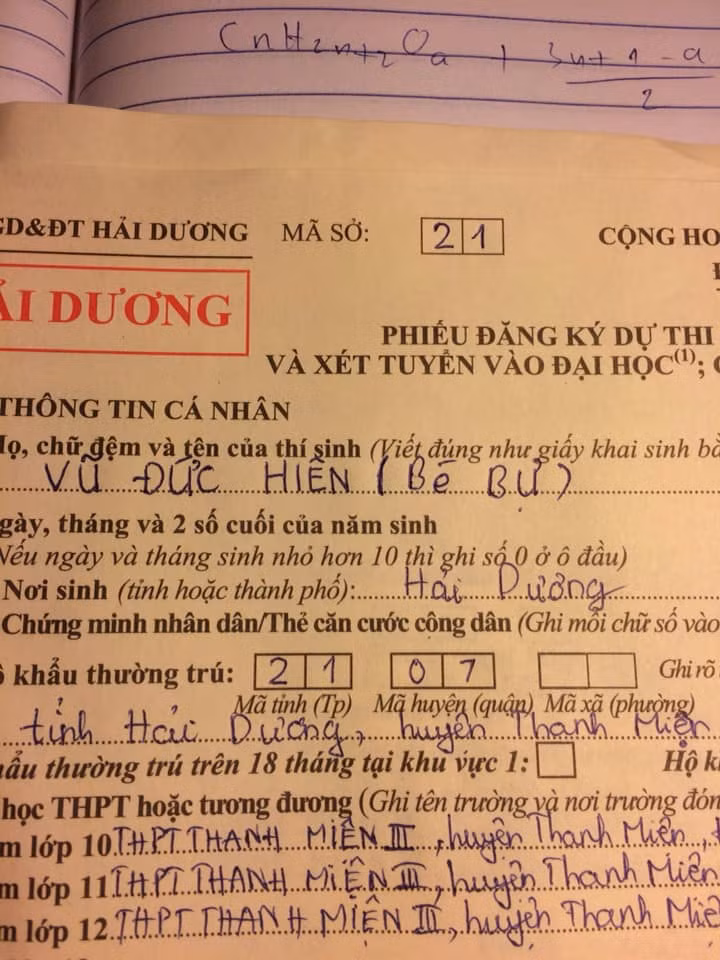 CnH2n+2Oa + 3n+1-a
2
GD&ĐT HẢI DƯƠNG MÃ SỞ: 21 CỘNG HO
ẢI DƯƠNG
PHIẾU ĐĂNG KÝ DỰ THI
VÀ XÉT TUYỂN VÀO ĐẠI HỌC(1); C
THÔNG TIN CÁ NHÂN
Họ, chữ đệm và tên của thí sinh (Viết đúng như giấy khai sinh bằ
VŨ ĐỨC HIỀN (Bé Bự)
gày, tháng và 2 số cuối của năm sinh
(Nếu ngày và tháng sinh nhỏ hơn 10 thì ghi số 0 ở ô đầu)
Nơi sinh (tỉnh hoặc thành phố): Hải Dương
Chứng minh nhân dân/Thẻ căn cước công dân (Ghi mỗi chữ số vào
ộ khẩu thường trú: 21 07 Ghi rõ
Mã tỉnh (Tp) Mã huyện (quận) Mã xã (phường)
tỉnh Hải Dương, huyện Thanh Miện
hẩu thường trú trên 18 tháng tại khu vực 1: Hộ k
học THPT hoặc tương đương (Ghi tên trường và nơi trường đón
m lớp 10 THPT THANH MIỆN III, huyện Thanh Miện, t
m lớp 11 THPT THANH MIỆN III, huyện Thanh Miện
m lớp 12 THPT THANH MIỆN III, huyện Thanh Miệ